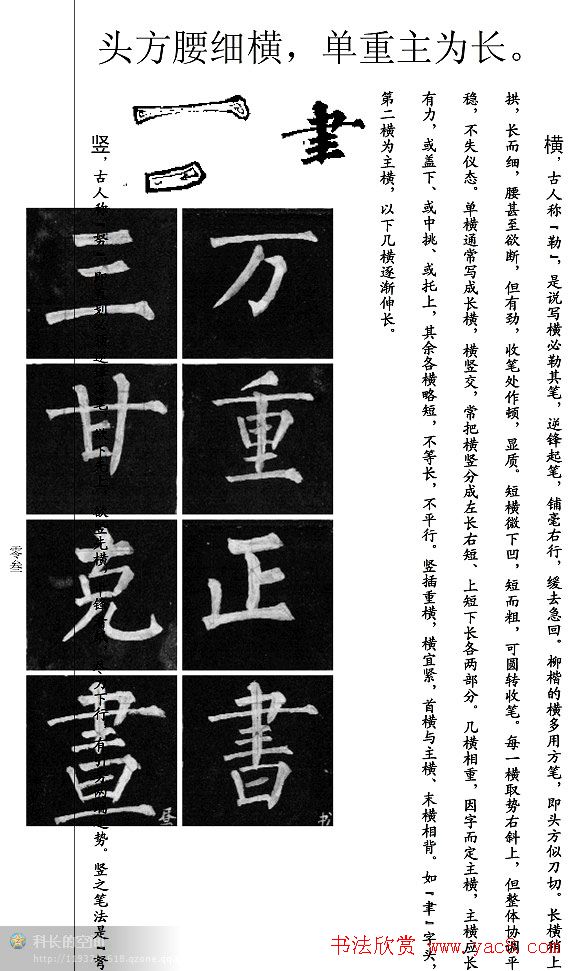 头方腰细横，单重主为长。
横，古人称「勒」，是说写横必勒其笔，逆锋起笔，铺毫右行，缓去急回。柳楷的横多用方笔，即头方似刀切。长横稍上
拱，长而细，腰甚至欲断，但有劲，收笔处作顿，显质。短横微下凹，短而粗，可圆转收笔。每一横取势右斜上，但整体协调平
稳，不失仪态。单横通常写成长横，横竖交，常把横竖分成左长右短、上短下长各两部分。几横相重，因字而定主横，主横应长
有力，或盖下、或中挑、或托上，其余各横略短，不等长，不平行。竖插重横，横宜紧，首横与主横、末横相背。如「聿」字头，
第二横为主横，以下几横逐渐伸长。
書
万
重
正
書
书
三
甘
克
晝
昼
竖，古人称 势。竖之笔法是「弩
零叁
科长的空间
书法欣赏 www.yac8.com